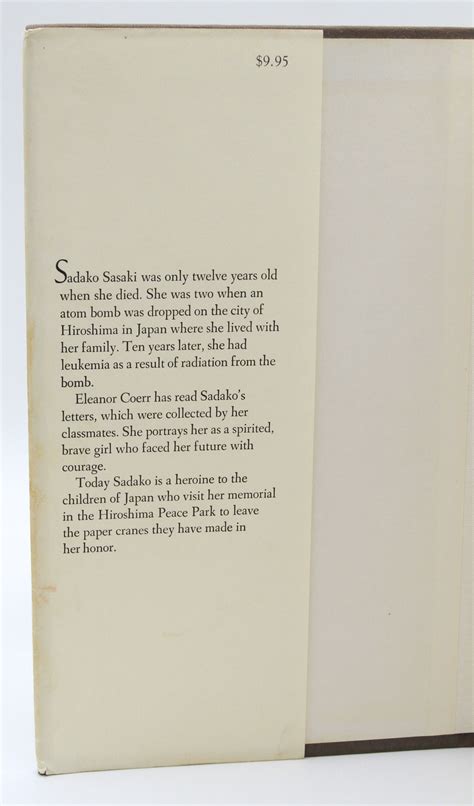 $9.95
Sadako Sasaki was only twelve years old
when she died. She was two when an
atom bomb was dropped on the city of
Hiroshima in Japan where she lived with
her family. Ten years later, she had
leukemia as a result of radiation from the
bomb.
Eleanor Coerr has read Sadako's
letters, which were collected by her
classmates. She portrays her as a spirited,
brave girl who faced her future with
courage.
Today Sadako is a heroine to the
children of Japan who visit her memorial
in the Hiroshima Peace Park to leave
the paper cranes they have made in
her honor.